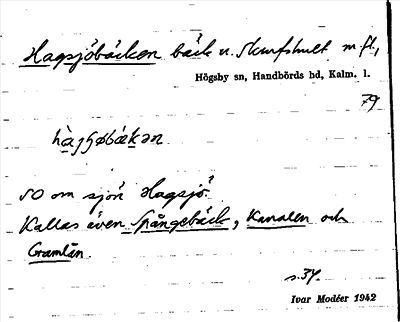 Hagsjöbäcken bäck v. Skurfshult m.fl.,
Högsby sn, Handbörds hd, Kalm. l.
79
SO om sjön Hagsjö?
Kallas även Spångebäck, Kanalen och
Gramlån.
s. 34.
Ivar Modéer 1942